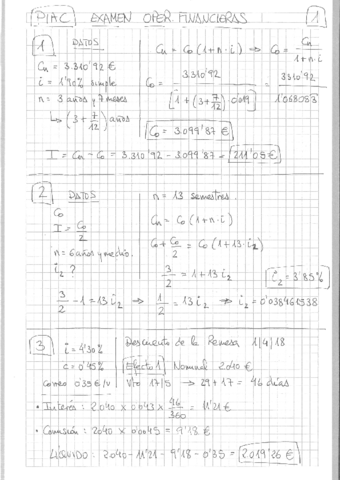 PIAC EXAMEN OPER. FINANCIERAS 1
1 DATOS
Cn = 3.310'92 €
i = 1'90% simple
n = 3 años y 7 meses
↳ (3 + 7/12) años
Cn = Co (1 + n · i) ⇒ Co = Cn / 1 + n · i
Co = 3310'92 / [1 + (3 + 7/12) 0'019] = 3310'92 / 1'068083
Co = 3.099'87 €
I = Cn - Co = 3.310'92 - 3.099'87 = 211'05 €
2 DATOS
Co
I = Co/2
n = 6 años y medio.
i2 ?
n = 13 semestres.
Cn = Co (1 + n · i)
Co + Co/2 = Co (1 + 13 · i2)
3/2 = 1 + 13 i2
3/2 - 1 = 13 i2 ⇒ 1/2 = 13 i2 ⇒ i2 = 0'038461538
i2 = 3'85%
3 i = 4'30%
c = 0'45%
correo 0'35 €/v
Descuento de la Remesa 1/4/18
Efecto 1 Nominal 2040 €
Vto 17/5 → 29 + 17 = 46 días
• Interés: 2040 x 0'043 x 46/360 = 11'21 €
• Comisión: 2040 x 0'0045 = 9'18 €
LÍQUIDO: 2040 - 11'21 - 9'18 - 0'35 = 2019'26 €